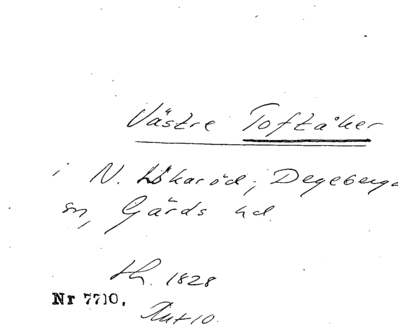 Västre Toftåker
i N. Lökaröd, Degeberga
sn, Gärds hd.
th. 1828
Nr 7710.